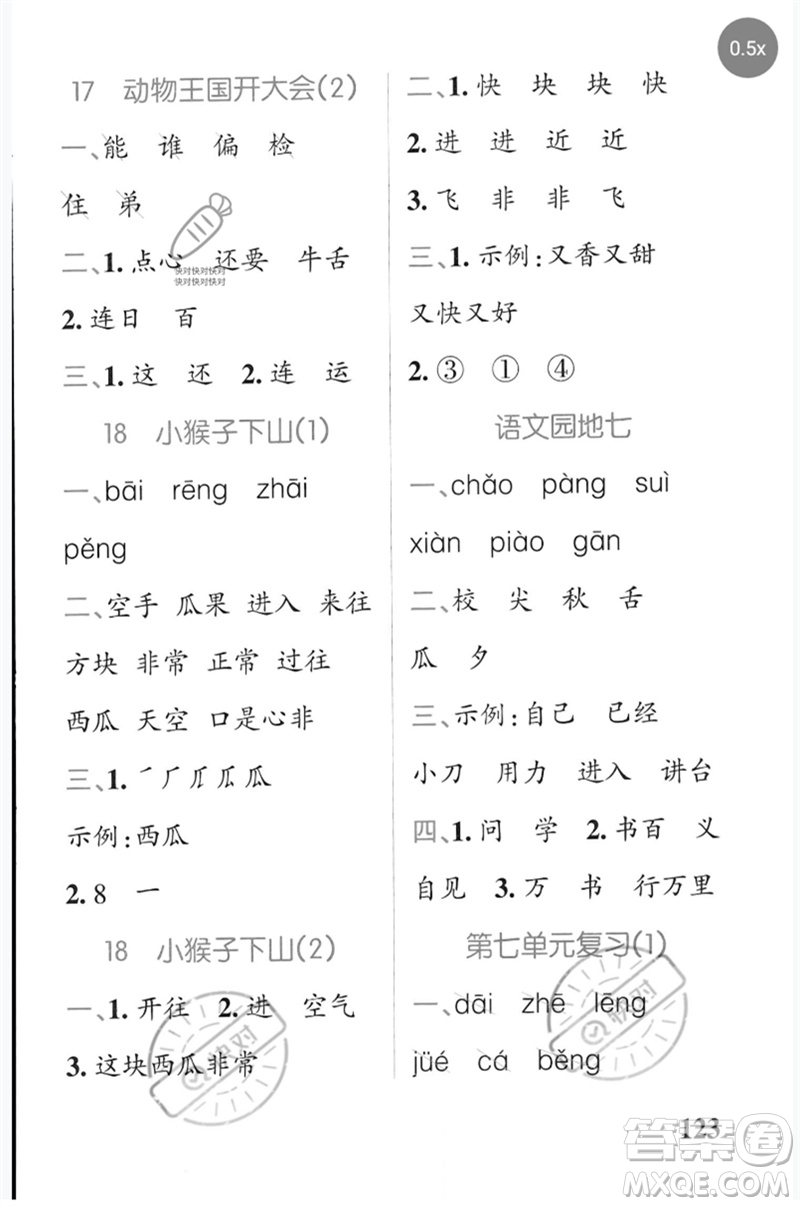 0.5x
17 动物王国开大会(2)
一、能 谁 偏 检
住 弟
二、1. 点心 还要 牛舌
快对快对快对
快对快对快对
2. 连日 百
三、1. 这 还 2. 连 运
18 小猴子下山(1)
一、bāi rēng zhāi
pěng
二、空手 瓜果 进入 来往
方块 非常 正常 过往
西瓜 天空 口是心非
三、1. ㇒ 厂 瓜 瓜
示例:西瓜
2. 8 一
18 小猴子下山(2)
一、1. 开往 2. 进 空气
3. 这块西瓜非常
快对
二、1. 快 块 块 快
2. 进 进 近 近
3. 飞 非 非 飞
三、1. 示例:又香又甜
又快又好
2. ③ ① ④
语文园地七
一、chǎo pàng suì
xiàn piào gān
二、校 尖 秋 舌
瓜 夕
三、示例:自己 已经
小刀 用力 进入 讲台
四、1. 问 学 2. 书百 义
自见 3. 万 书 行万里
第七单元复习(1)
一、dāi zhē lēng
jüé cá běng
快对
123
答案圈
MXQE.COM